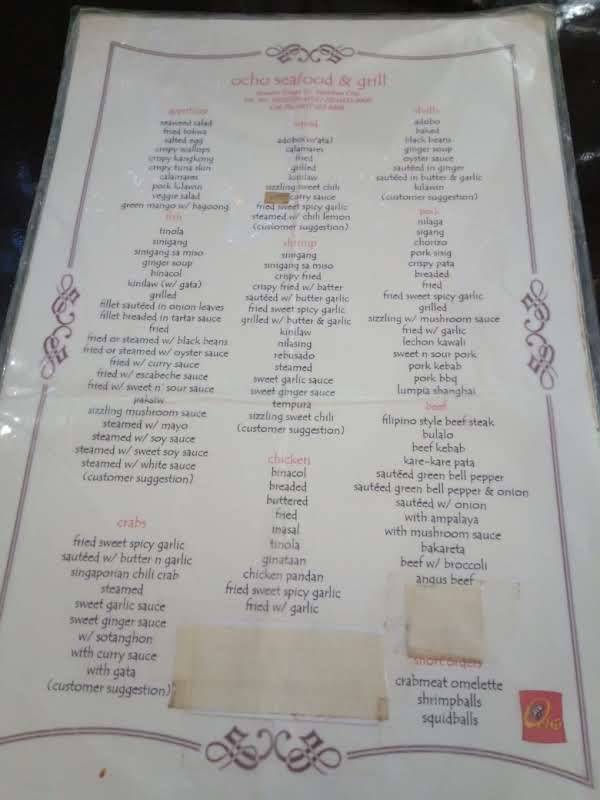 ocho seafood & grill
appetizer
seaweed salad
fried tokwa
salted egg
crispy scallops
crispy kangkong
crispy tuna skin
calamares
pork kilawin
veggie salad
green mango w/ bagoong
fish
tinola
sinigang
sinigang sa miso
ginger soup
binacol
kinilaw (w/ gata)
grilled
fillet sautéed in onion leaves
fillet breaded in tartar sauce
fried
fried or steamed w/ black beans
fried or steamed w/ oyster sauce
fried w/ curry sauce
fried w/ escabeche sauce
fried w/ sweet n' sour sauce
paksiw
sizzling mushroom sauce
steamed w/ mayo
steamed w/ soy sauce
steamed w/ sweet soy sauce
steamed w/ white sauce
(customer suggestion)
crabs
fried sweet spicy garlic
sautéed w/ butter n garlic
singaporian chili crab
steamed
sweet garlic sauce
sweet ginger sauce
w/ sotanghon
with curry sauce
with gata
(customer suggestion)
squid
adobo(w/ata)
calamares
fried
grilled
kinilaw
sizzling sweet chili
curry sauce
fried sweet spicy garlic
steamed w/ chili lemon
(customer suggestion)
shrimp
sinigang
sinigang sa miso
crispy fried
crispy fried w/ batter
sautéed w/ butter garlic
fried sweet spicy garlic
grilled w/ butter & garlic
kinilaw
nilasing
rebusado
steamed
sweet garlic sauce
sweet ginger sauce
tempura
sizzling sweet chili
(customer suggestion)
chicken
binacol
breaded
buttered
fried
inasal
tinola
ginataan
chicken pandan
fried sweet spicy garlic
fried w/ garlic
shells
adobo
baked
black beans
ginger soup
oyster sauce
sautéed in ginger
sautéed in butter & garlic
kilawin
(customer suggestion)
pork
nilaga
sigang
chorizo
pork sisig
crispy pata
breaded
fried
fried sweet spicy garlic
grilled
sizzling w/ mushroom sauce
fried w/ garlic
lechon kawali
sweet n sour pork
pork kebab
pork bbq
lumpia shanghai
beef
filipino style beef steak
bulalo
beef kebab
kare-kare pata
sautéed green bell pepper
sautéed green bell pepper & onion
sautéed w/ onion
with ampalaya
with mushroom sauce
bakareta
beef w/ broccoli
angus beef
short orders
crabmeat omelette
shrimpballs
squidballs